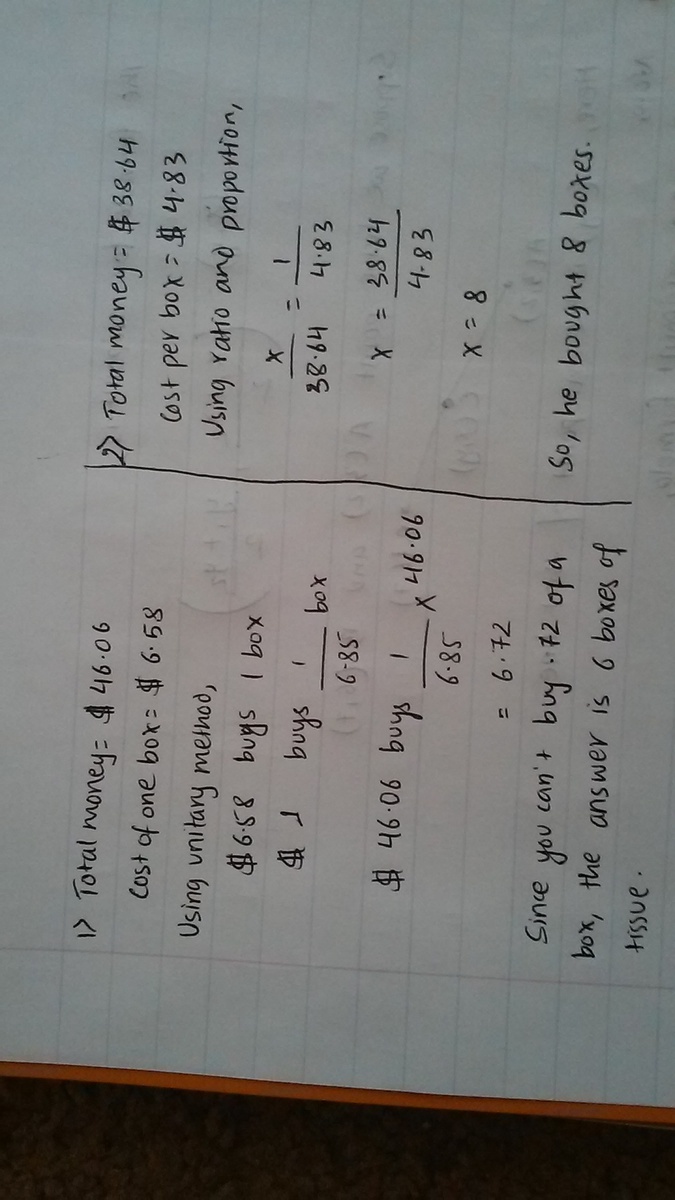 1) Total money = $ 46.06
Cost of one box = $ 6.58
Using unitary method,
$ 6.58 buys 1 box
$ 1 buys 1/6.85 box
$ 46.06 buys 1/6.85 X 46.06
= 6.72
Since you can't buy .72 of a
box, the answer is 6 boxes of
tissue.
2) Total money = $ 38.64
Cost per box = $ 4.83
Using ratio and proportion,
x/38.64 = 1/4.83
x = 38.64/4.83
x = 8
So, he bought 8 boxes.